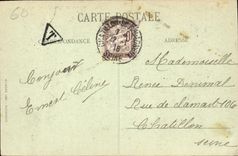 60
CARTE POSTALE
T
CORRESPONDANCE
ADRESSE
Bonjour
Ernest Célène
Mademoiselle
Renée Denimal
Rue de Clamart 106
Chatillon
Seine